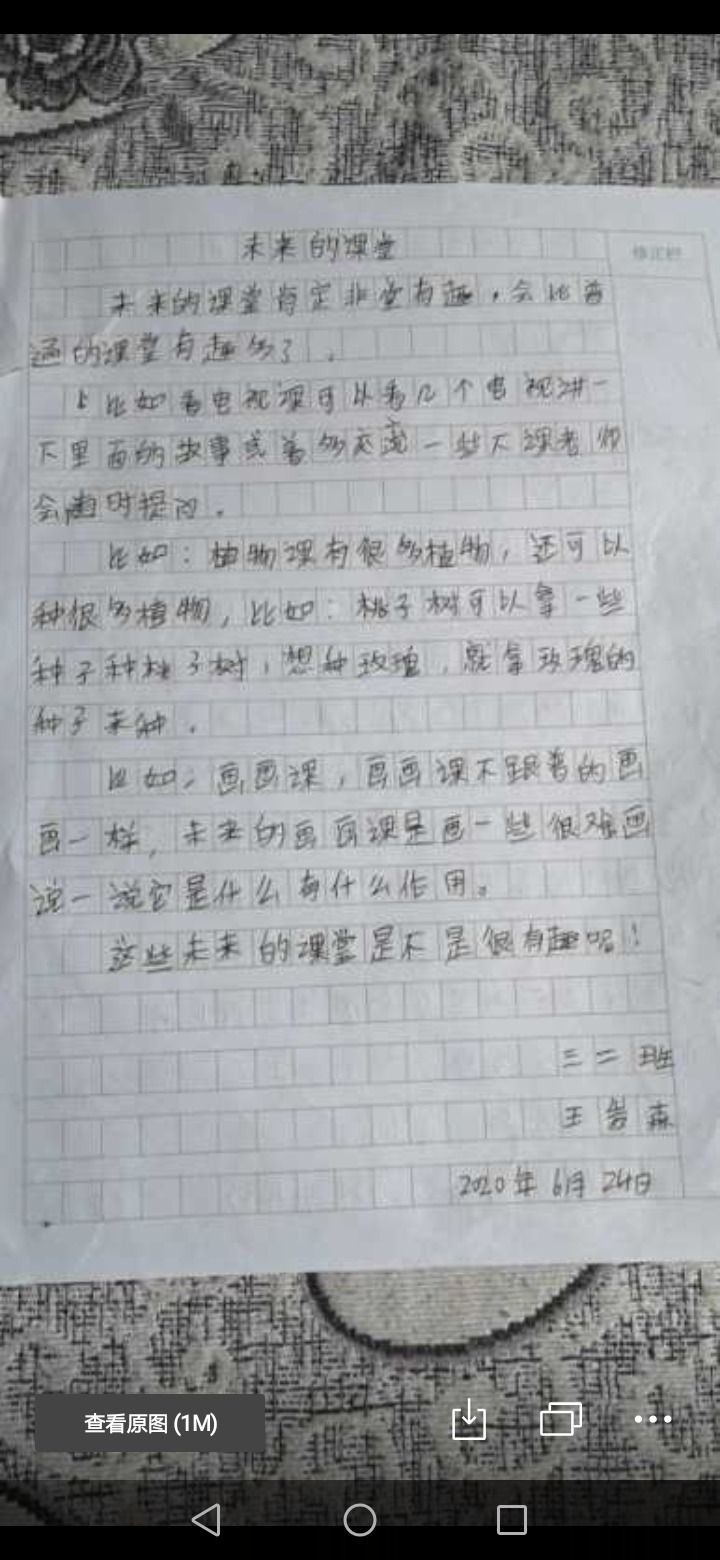 未来的课堂
修正栏
未来的课堂肯定非堂有趣，会比普
通的课堂有趣多了。
比如看电视课可以看几个电视讲一
下里面的故事或者多交流一些大课老师
会随时提问。
比如：植物课有很多植物，还可以
种很多植物，比如：桃子树可以拿一些
种子种桃子树，想种玫瑰，就拿玫瑰的
种子来种。
比如：画画课，画画课不跟普的画
画一样，未来的画画课是画一些很难画
说一说它是什么有什么作用。
这些未来的课堂是不是很有趣呢！
三二班
王 森
2020年6月24日
查看原图 (1M)